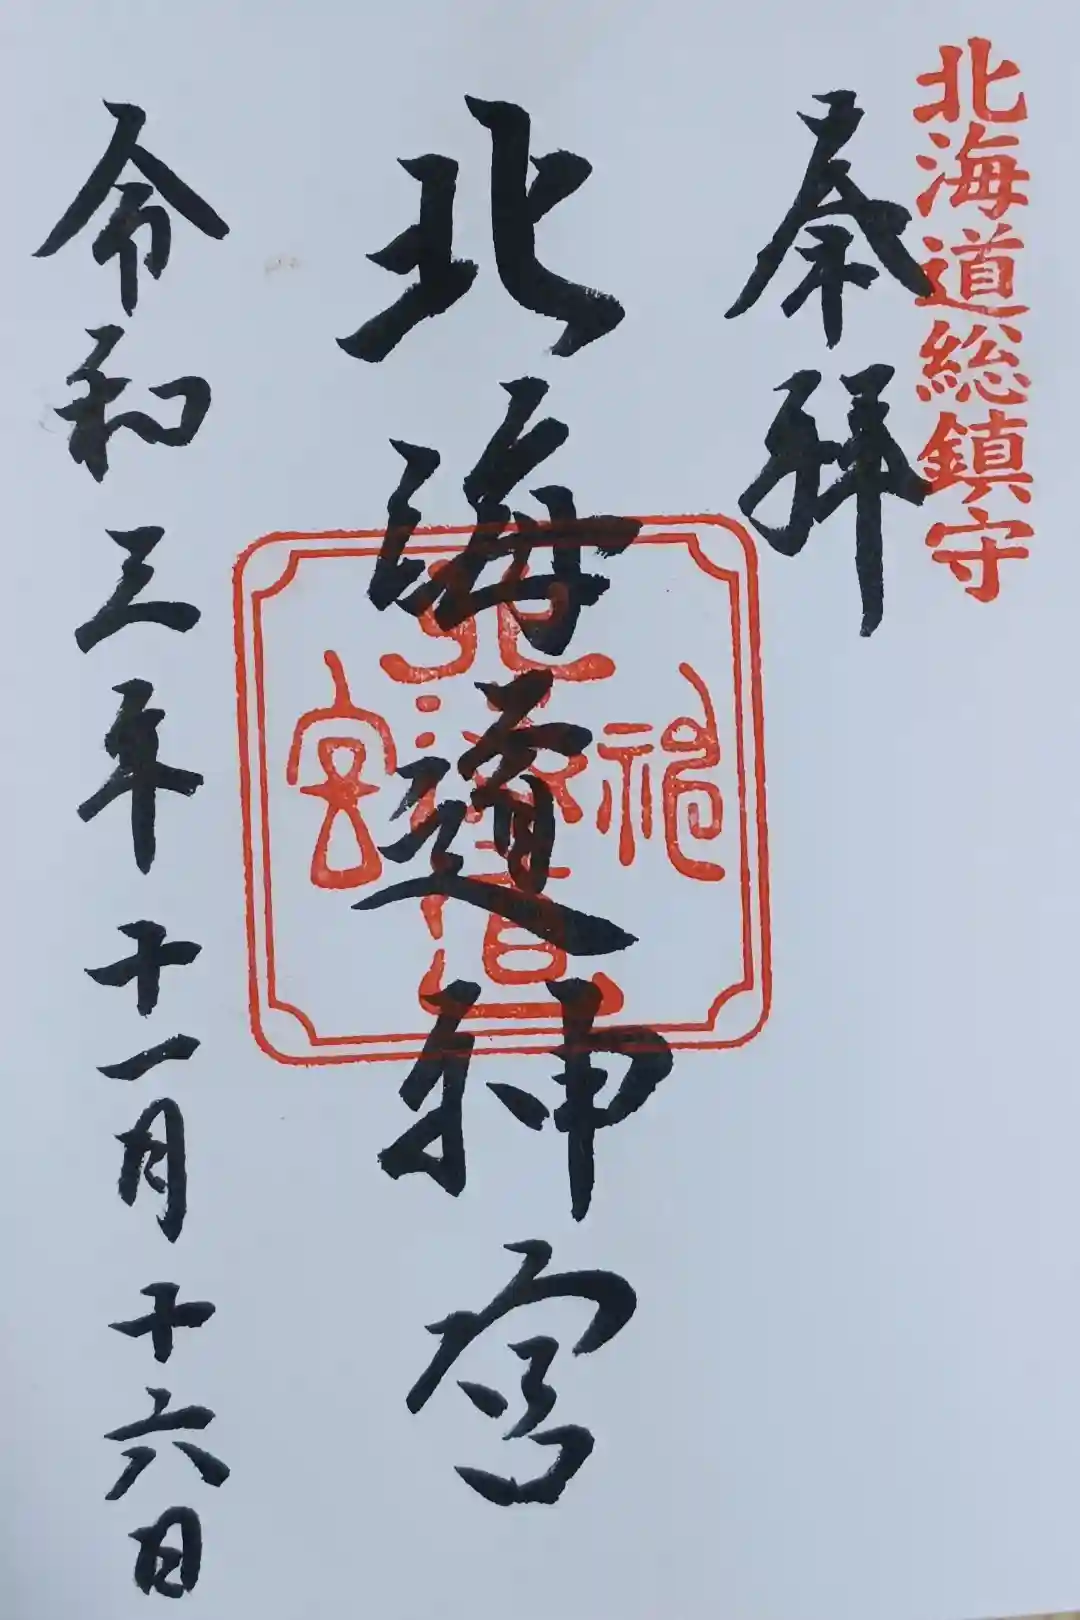 北海道総鎮守
奉拝
北海道神宮
北海道神宮
令和三年十一月十六日